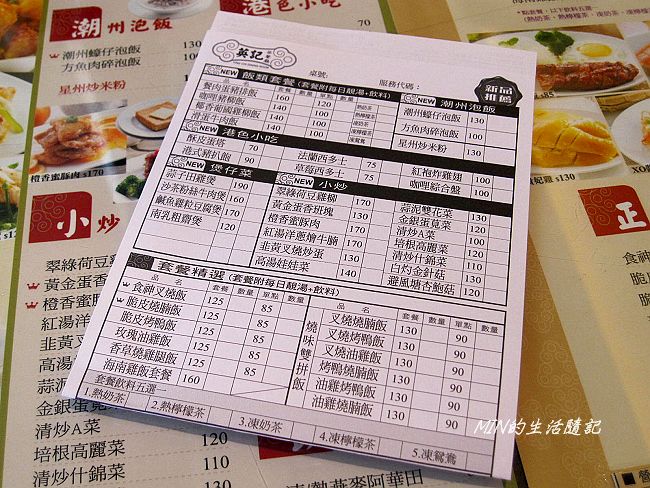 潮州泡飯
潮州蠔仔泡飯 130
方魚肉碎泡飯
星州炒米粉
港色小吃
70
橙香蜜豚肉 $170
小炒
翠綠荷豆
黃金蛋香
橙香蜜豚
紅湯洋
韭黃叉
高湯
蒜泥
金銀蛋莧
清炒A菜 110
培根高麗菜 120
清炒什錦菜 110
英記
NEW 飯類套餐(套餐附每日靚湯+飲料)
桌號:
服務代碼:
新品推薦
品名 套餐 單點 數量
餐肉蛋豬排飯 160 120
咖哩豬柳飯 140 100
椰香葡國雞柳飯 140 100
滑蛋牛肉飯 140 100
NEW 潮州泡飯
潮州蠔仔泡飯 130
方魚肉碎泡飯 100
星州炒米粉 130
NEW 港色小吃
酥皮蛋塔 70
港式豬扒飽 90
法蘭西多士 75
草莓西多士 75
紅袍炸雞翅 100
咖哩綜合盤 100
NEW 煲仔菜
蒜子田雞煲 190
沙茶粉絲牛肉煲 190
鹹魚雞粒豆腐煲 170
南乳粗齋煲 120
NEW 小炒
翠綠荷豆雞柳 170
黃金蛋香班塊 130
橙香蜜豚肉 170
紅湯洋蔥燴牛腩 170
韭黃叉燒炒蛋 130
高湯娃娃菜 140
蒜泥雙花菜 130
金銀蛋莧菜 130
清炒A菜 100
培根高麗菜 110
清炒什錦菜 110
白灼金針菇 130
避風塘杏鮑菇 120
套餐精選(套餐附每日靚湯+飲料)
品名 套餐 數量 單點 數量
食神叉燒飯 125 85
脆皮燒腩飯 125 85
脆皮烤鴨飯 125 85
玫瑰油雞飯 125 85
香草燒雞腿飯 125 85
海南雞飯套餐 160
燒味雙拼飯
品名 套餐 數量 單點 數量
叉燒燒腩飯 130 90
叉燒烤鴨飯 130 90
叉燒油雞飯 130 90
烤鴨燒腩飯 130 90
油雞烤鴨飯 130 90
油雞燒腩飯 130 90
套餐飲料五選一
1.熱奶茶 2.熱檸檬茶 3.凍奶茶 4.凍檸檬茶 5.凍鴛鴦
MIN的生活隨記
正
食神
脆皮
脆皮
熱燕麥阿華田